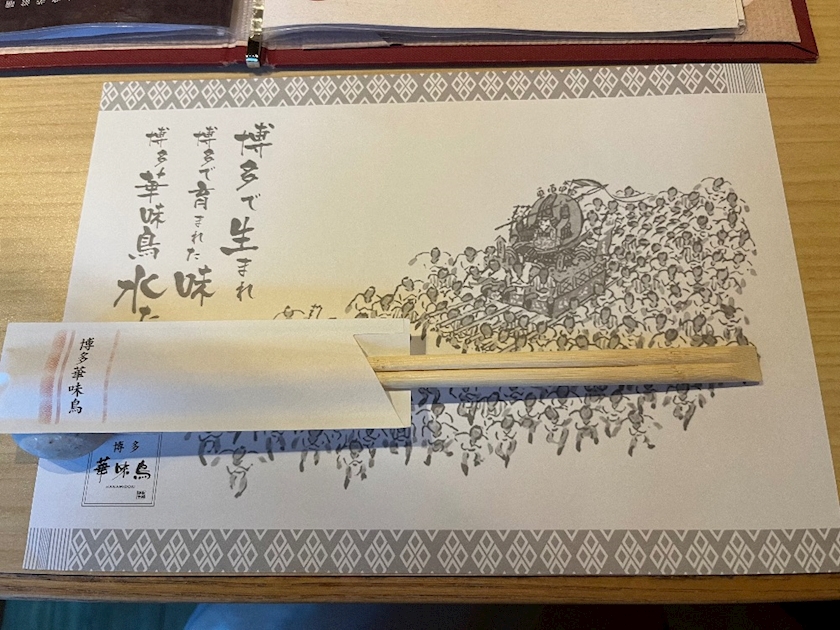 博多で生まれ
博多で育まれた味
博多華味鳥水た
博多華味鳥
博多
華味鳥